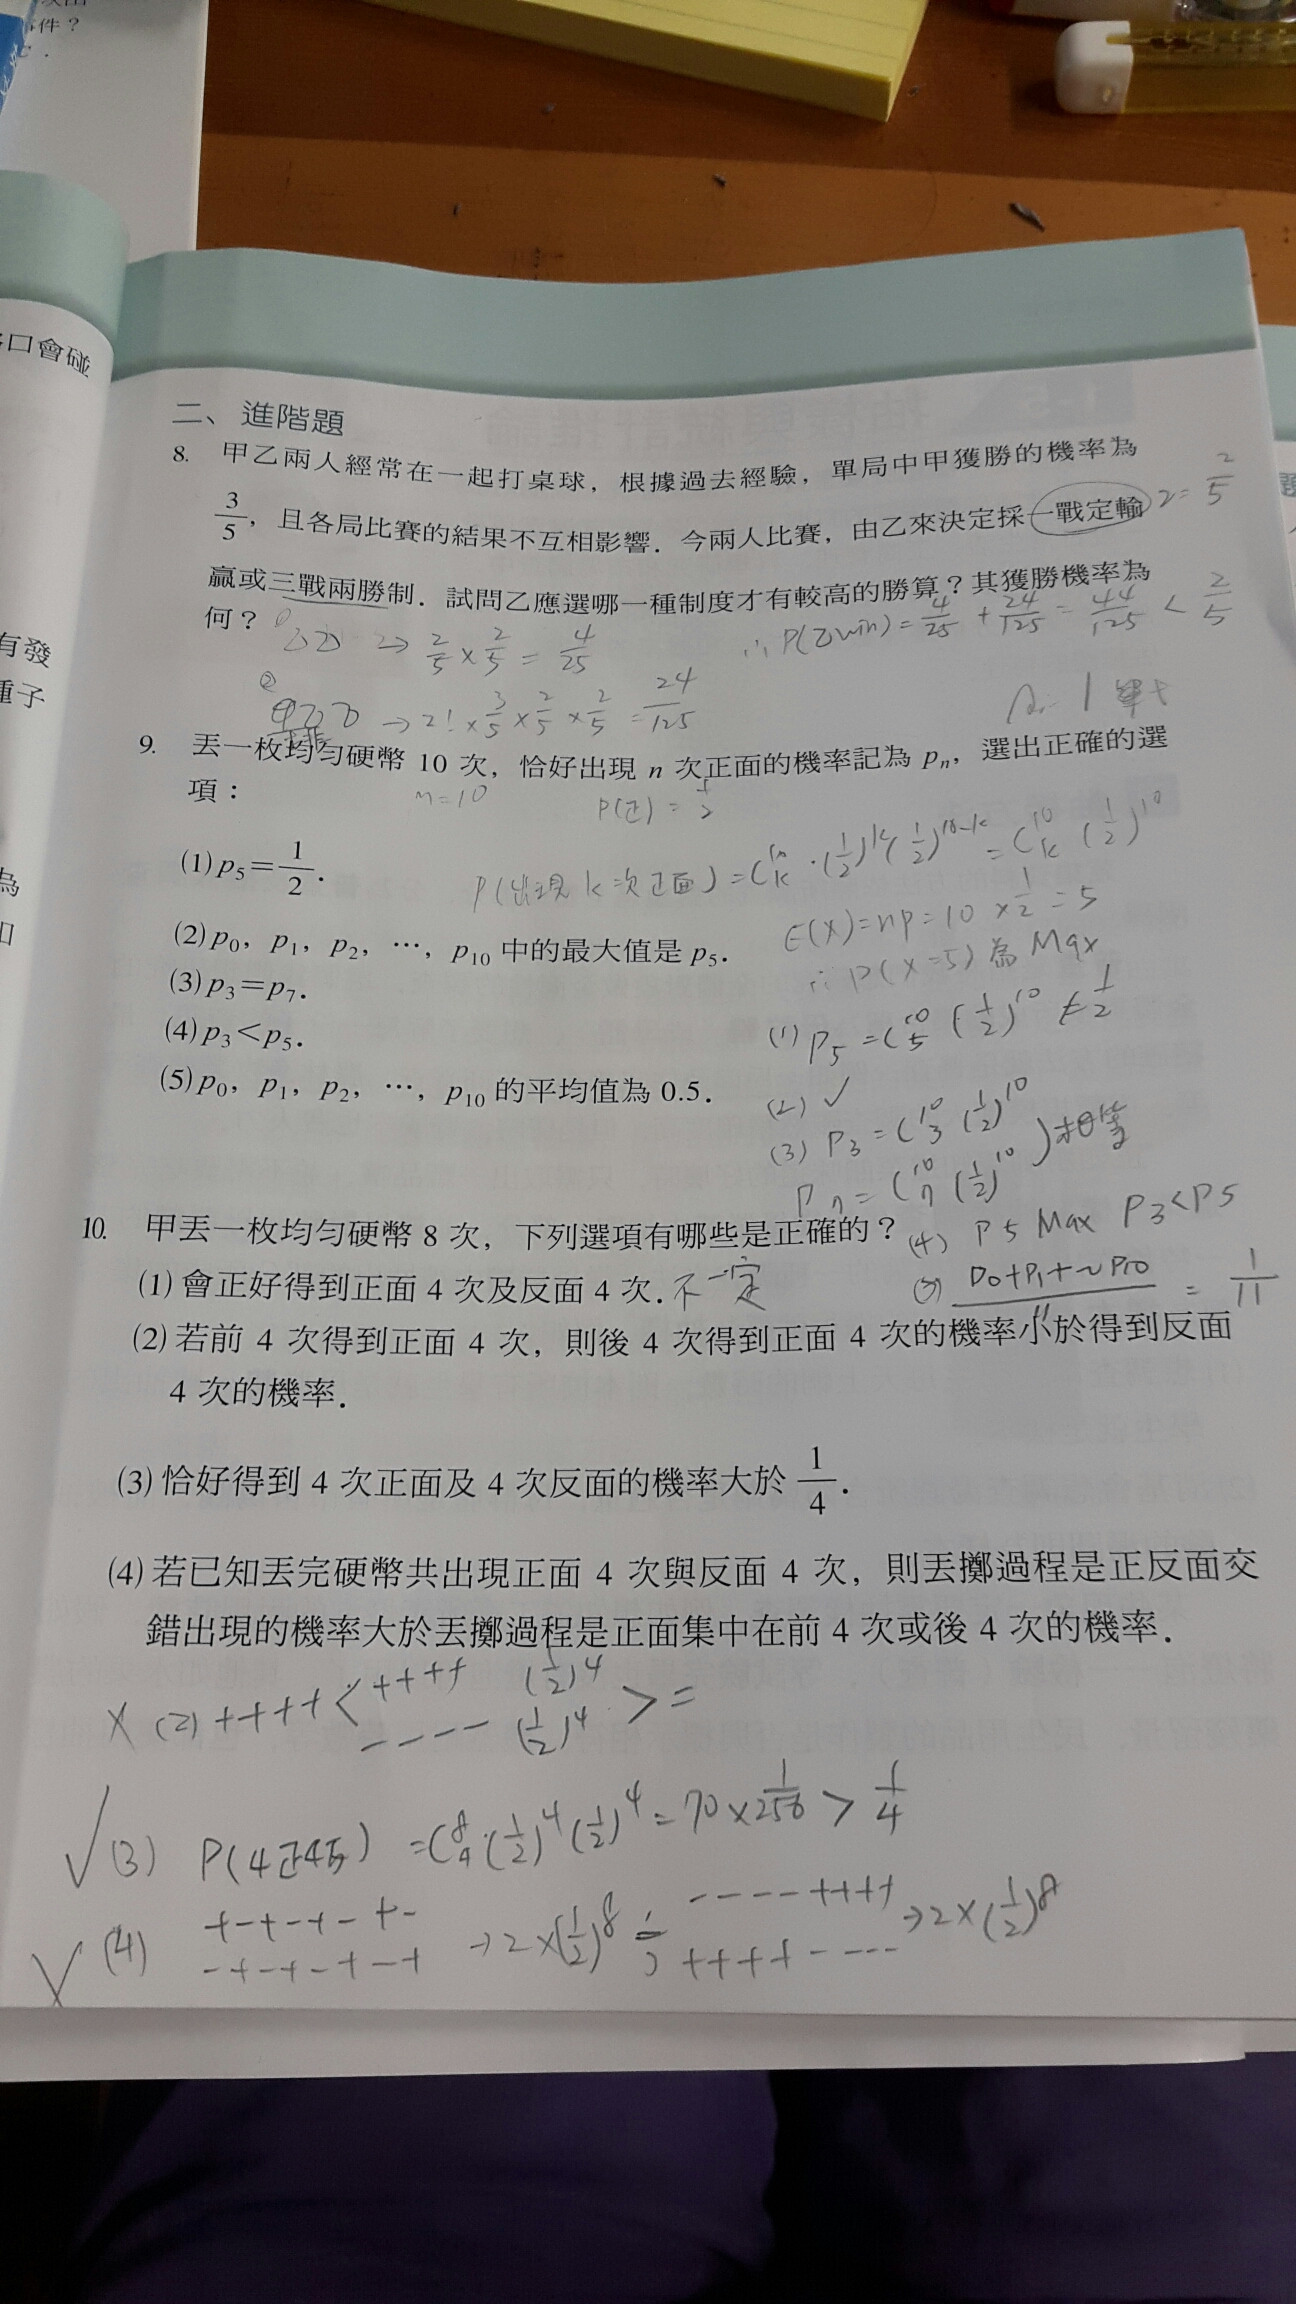 件？
口會碰
有發
種子
為
二、進階題
8. 甲乙兩人經常在一起打桌球，根據過去經驗，單局中甲獲勝的機率為
3/5，且各局比賽的結果不互相影響．今兩人比賽，由乙來決定採一戰定輸 乙=2/5
贏或三戰兩勝制．試問乙應選哪一種制度才有較高的勝算？其獲勝機率為
何？ ① 乙乙 → 2/5 × 2/5 = 4/25 ∴ P(乙win) = 4/25 + 24/125 = 44/125 < 2/5
② 甲乙乙 → 2! × 3/5 × 2/5 × 2/5 = 24/125 A: 1戰
9. 丟一枚均勻硬幣 10 次，恰好出現 n 次正面的機率記為 pₙ，選出正確的選
項： n=10 P(正) = 1/2
(1) p₅=1/2． P(出現 k 次正面) = C¹⁰ₖ · (1/2)ᵏ (1/2)¹⁰⁻ᵏ = C¹⁰ₖ (1/2)¹⁰
E(X)=np=10 × 1/2 = 5
(2) p₀，p₁，p₂，…，p₁₀ 中的最大值是 p₅． ∴ P(X=5) 為 Max
(3) p₃=p₇．
(4) p₃<p₅． (1) P₅ = C¹⁰₅ (1/2)¹⁰ ≠ 1/2
(5) p₀，p₁，p₂，…，p₁₀ 的平均值為 0.5． (2) ✓
(3) P₃ = C¹⁰₃ (1/2)¹⁰
P₇ = C¹⁰₇ (1/2)¹⁰ ) 相等
10. 甲丟一枚均勻硬幣 8 次，下列選項有哪些是正確的？ (4) P5 Max P3<P5
(1) 會正好得到正面 4 次及反面 4 次．不一定 (5) P0+P1+~P10 / 11 = 1/11
(2) 若前 4 次得到正面 4 次，則後 4 次得到正面 4 次的機率小於得到反面
4 次的機率．
(3) 恰好得到 4 次正面及 4 次反面的機率大於 1/4．
(4) 若已知丟完硬幣共出現正面 4 次與反面 4 次，則丟擲過程是正反面交
錯出現的機率大於丟擲過程是正面集中在前 4 次或後 4 次的機率．
× (2) ++++ < ++++ (1/2)⁴
---- (1/2)⁴ > =
✓ (3) P(4正4反) = C⁸₄ · (1/2)⁴ (1/2)⁴ = 70 × 1/256 > 1/4
× (4) +-+-+-+- ---- ++++
-+-+-+-+ → 2 × (1/2)⁸ = ++++ ---- → 2 × (1/2)⁸